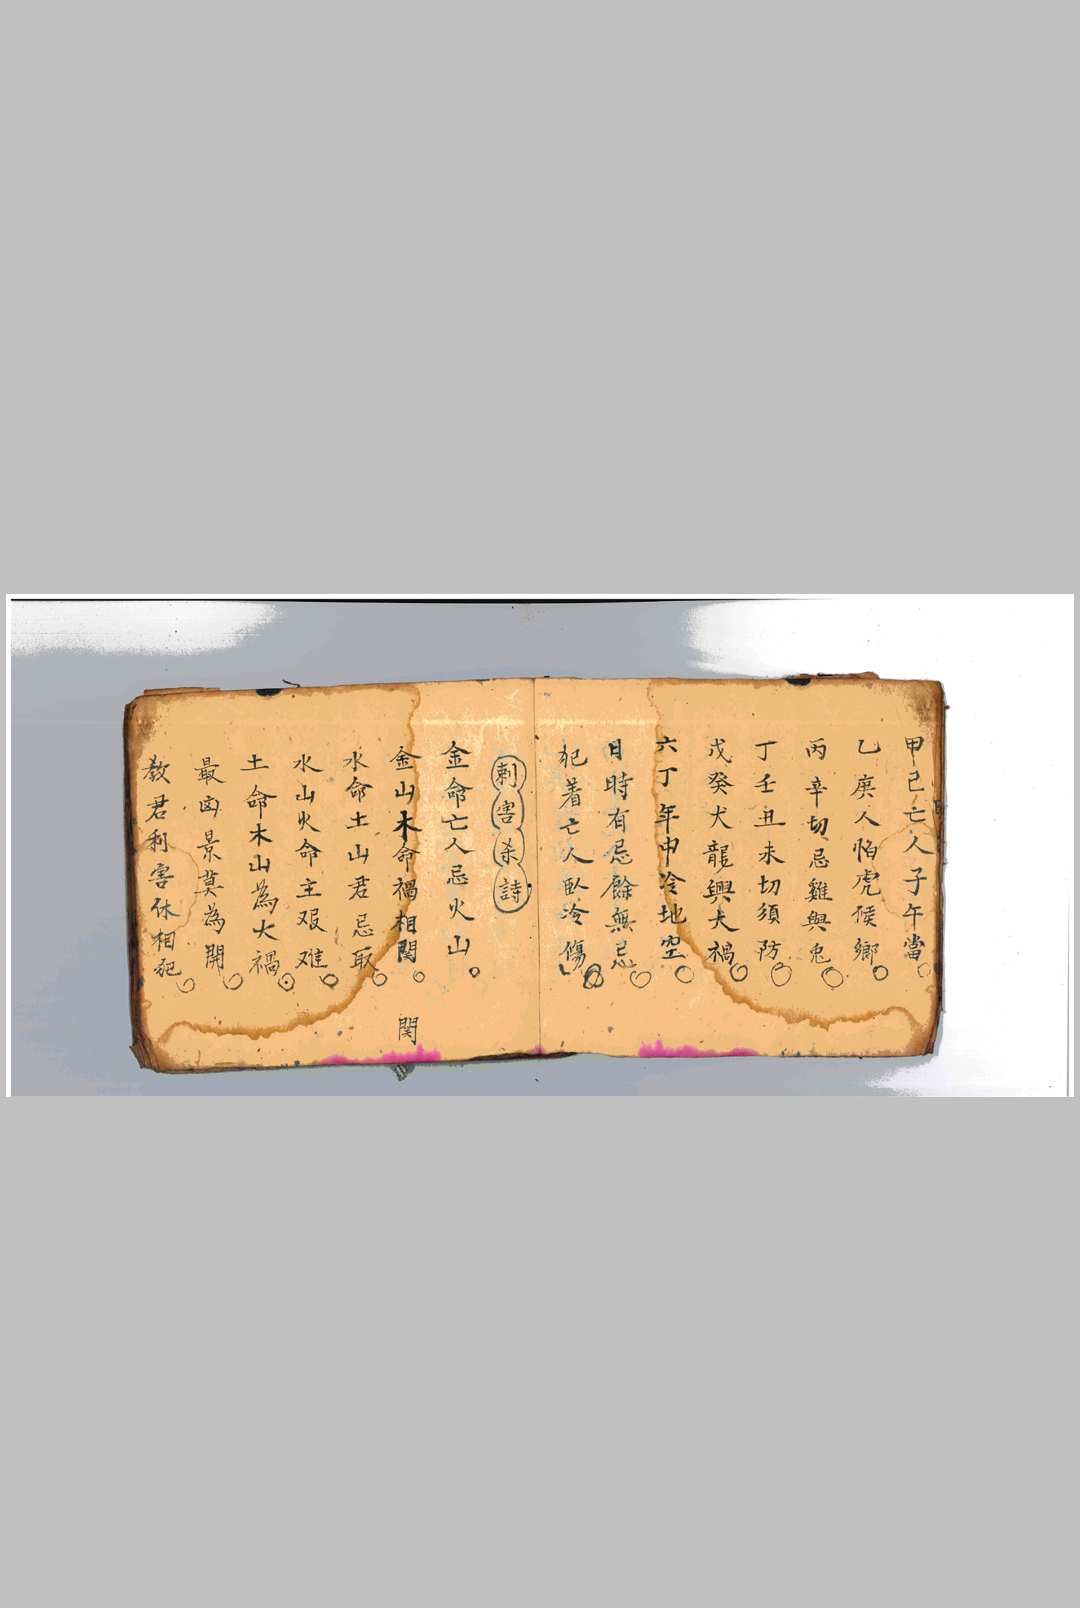 甲己亡人子午當
乙庚人怕虎猴鄉
丙辛切忌雞與兔
丁壬丑未切須防
戊癸犬龍興大禍
六丁年中冷地空
日時有忌餘無忌
犯着亡人臥冷傷
刺害杀詩
金命亡人忌火山
金山木命禍相関
関
水命土山君忌取
水山火命主艰难
土命木山為大禍
最凶景莫為開
教君利害休相犯